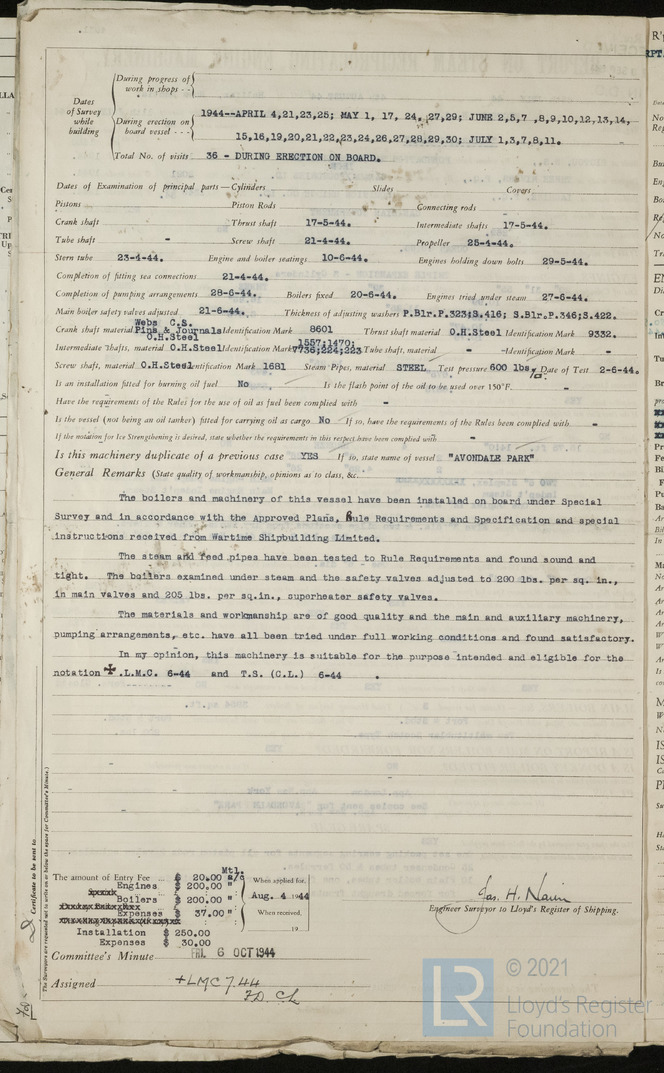 During progress of
work in shops - -
Dates
of Survey
while
building
During erection on
board vessel - - -
1944--APRIL 4,21,23,25; MAY 1, 17, 24, 27,29; JUNE 2,5,7 ,8,9,10,12,13,14,
15,16,19,20,21,22,23,24,26,27,28,29,30; JULY 1,3,7,8,11.
Total No. of visits 36 - DURING ERECTION ON BOARD.
Dates of Examination of principal parts—Cylinders Slides Covers
Pistons Piston Rods Connecting rods
Crank shaft Thrust shaft 17-5-44. Intermediate shafts 17-5-44.
Tube shaft - Screw shaft 21-4-44. Propeller 25-4-44.
Stern tube 23-4-44. Engine and boiler seatings 10-6-44. Engines holding down bolts 29-5-44.
Completion of fitting sea connections 21-4-44.
Completion of pumping arrangements 28-6-44. Boilers fixed 20-6-44. Engines tried under steam 27-6-44.
Main boiler safety valves adjusted 21-6-44. Thickness of adjusting washers P.Blr.P.323;S.416; S.Blr.P.346;S.422.
Webs C.S.
Crank shaft material Pins & Journals Identification Mark 8601 Thrust shaft material O.H.Steel Identification Mark 9332.
O.H.Steel
1557;1470;
Intermediate shafts, material O.H.Steel Identification Mark 7736;224;223 Tube shaft, material - Identification Mark -
Screw shaft, material O.H.Steel Identification Mark 1681 Steam Pipes, material STEEL Test pressure 600 lbs/□" Date of Test 2-6-44.
Is an installation fitted for burning oil fuel No Is the flash point of the oil to be used over 150°F.
Have the requirements of the Rules for the use of oil as fuel been complied with -
Is the vessel (not being an oil tanker) fitted for carrying oil as cargo No If so, have the requirements of the Rules been complied with -
If the notation for Ice Strengthening is desired, state whether the requirements in this respect have been complied with -
Is this machinery duplicate of a previous case YES If so, state name of vessel "AVONDALE PARK"
General Remarks (State quality of workmanship, opinions as to class, &c.
The boilers and machinery of this vessel have been installed on board under Special
Survey and in accordance with the Approved Plans, Rule Requirements and Specification and special
instructions received from Wartime Shipbuilding Limited.
The steam and feed pipes have been tested to Rule Requirements and found sound and
tight. The boilers examined under steam and the safety valves adjusted to 200 lbs. per sq. in.,
in main valves and 205 lbs. per sq.in., superheater safety valves.
The materials and workmanship are of good quality and the main and auxiliary machinery,
pumping arrangements, etc. have all been tried under full working conditions and found satisfactory.
In my opinion, this machinery is suitable for the purpose intended and eligible for the
notation ✠.L.M.C. 6-44 and T.S. (C.L.) 6-44 .
Certificate to be sent to
The Surveyors are requested not to write on or below the space for Committee's Minute.)
Mtl.
The amount of Entry Fee $ 20.00 a/c
Engines $ 200.00 "
Boilers $ 200.00 "
Expenses $ 37.00 "
Installation $ 250.00
Expenses $ 30.00
When applied for,
Aug. 4 1944
When received,
19
Jas. H. Nairn
Engineer Surveyor to Lloyd's Register of Shipping.
Committee's Minute FRI. 6 OCT 1944
Assigned +LMC 7.44
F.D. CL
LR
© 2021
Lloyd's Register
Foundation